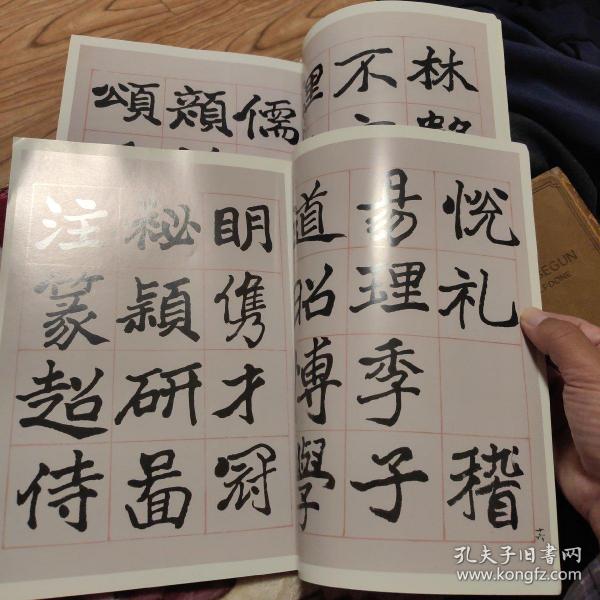 林
不
儒
頌
悦礼稽
易理季子
道昭博學
明儁才冠
秘穎研啚
注篆超侍
十六
SEGUN
DONE
孔夫子旧书网
www.kongfz.com